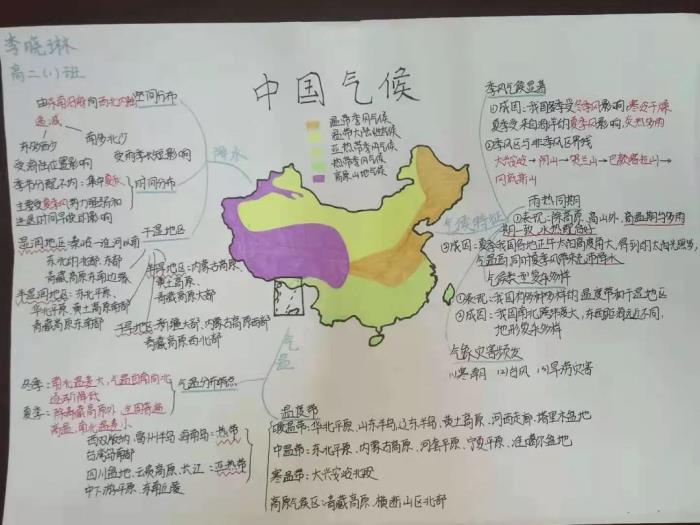 李晓琳
高二(1)班
中国气候
温带季风气候
温带大陆性气候
亚热带季风气候
热带季风气候
高原山地气候
降水
空间分布
由东南沿海向西北内陆
递减
东多西少
南多北少
受海陆位置影响
受雨季长短影响
时间分布
季节分配不均:集中夏秋
主要受夏季风势力强弱和
进退时间早晚的影响
干湿地区
湿润地区:秦岭—淮河以南
东北的北部、东部
青藏高原东南边缘
半湿润地区:东北平原、
华北平原、黄土高原南部
青藏高原东南部
半干旱地区:内蒙古高原、
黄土高原、
青藏高原大部
干旱地区:新疆大部、内蒙古高原西部
青藏高原西北部
气温
气温分布特点
冬季:南北温差大,气温自南向北
逐渐降低
夏季:除青藏高原外,全国普遍
高温,南北温差小
温度带
西双版纳、雷州半岛、海南岛:热带
台湾岛南部
四川盆地、云贵高原、长江:亚热带
中下游平原、东南丘陵
暖温带:华北平原、山东半岛、辽东半岛、黄土高原、河西走廊、塔里木盆地
中温带:东北平原、内蒙古高原、河套平原、宁夏平原、准噶尔盆地
寒温带:大兴安岭北段
高原气候区:青藏高原、横断山区北部
气候特征
季风气候显著
①成因:我国冬季受冬季风影响,寒冷干燥
夏季受来自海洋的夏季风影响,炎热多雨
②季风区与非季风区界线
大兴安岭→阴山→贺兰山→巴颜喀拉山→
冈底斯山
雨热同期
①表现:除高原、高山外,高温期与多雨
期一致,水热配合好
②成因:夏季我国各地正午太阳高度角大,得到的太阳光照多,
气温高,同时夏季风带来充沛降水
气候类型复杂多样
①表现:我国有多种多样的温度带和干湿地区
②成因:我国南北跨纬度大,东西距海远近不同,
地形复杂多样
气象灾害频发
(1)寒潮 (2)台风 (3)旱涝灾害